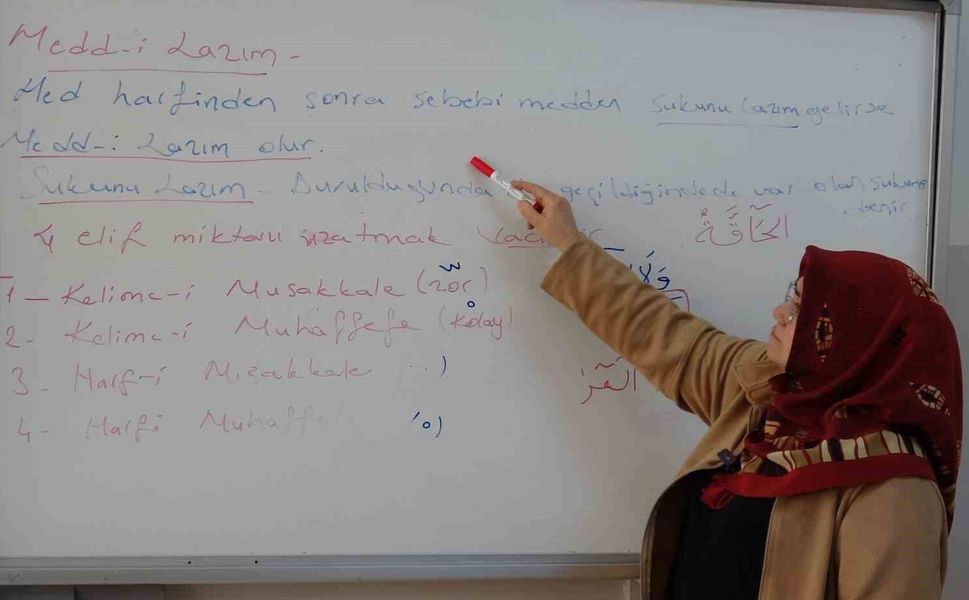 Medd-i Lazım -
Med harfinden sonra sebebi medden sukunu Lazım gelirse
Medd-i Lazım olur.
Sukunu Lazım - Durulduğunda geçildiğindede var olan sukuna
denir
4 elif miktarı uzatmak
اَلْحَآقَّةُ
1 - Kelime-i Musakkale (zor)
2 - Kelime-i Muhaffefe (kolay)
3 - Harf-i Musakkale
4 - Harfi Muhaffe